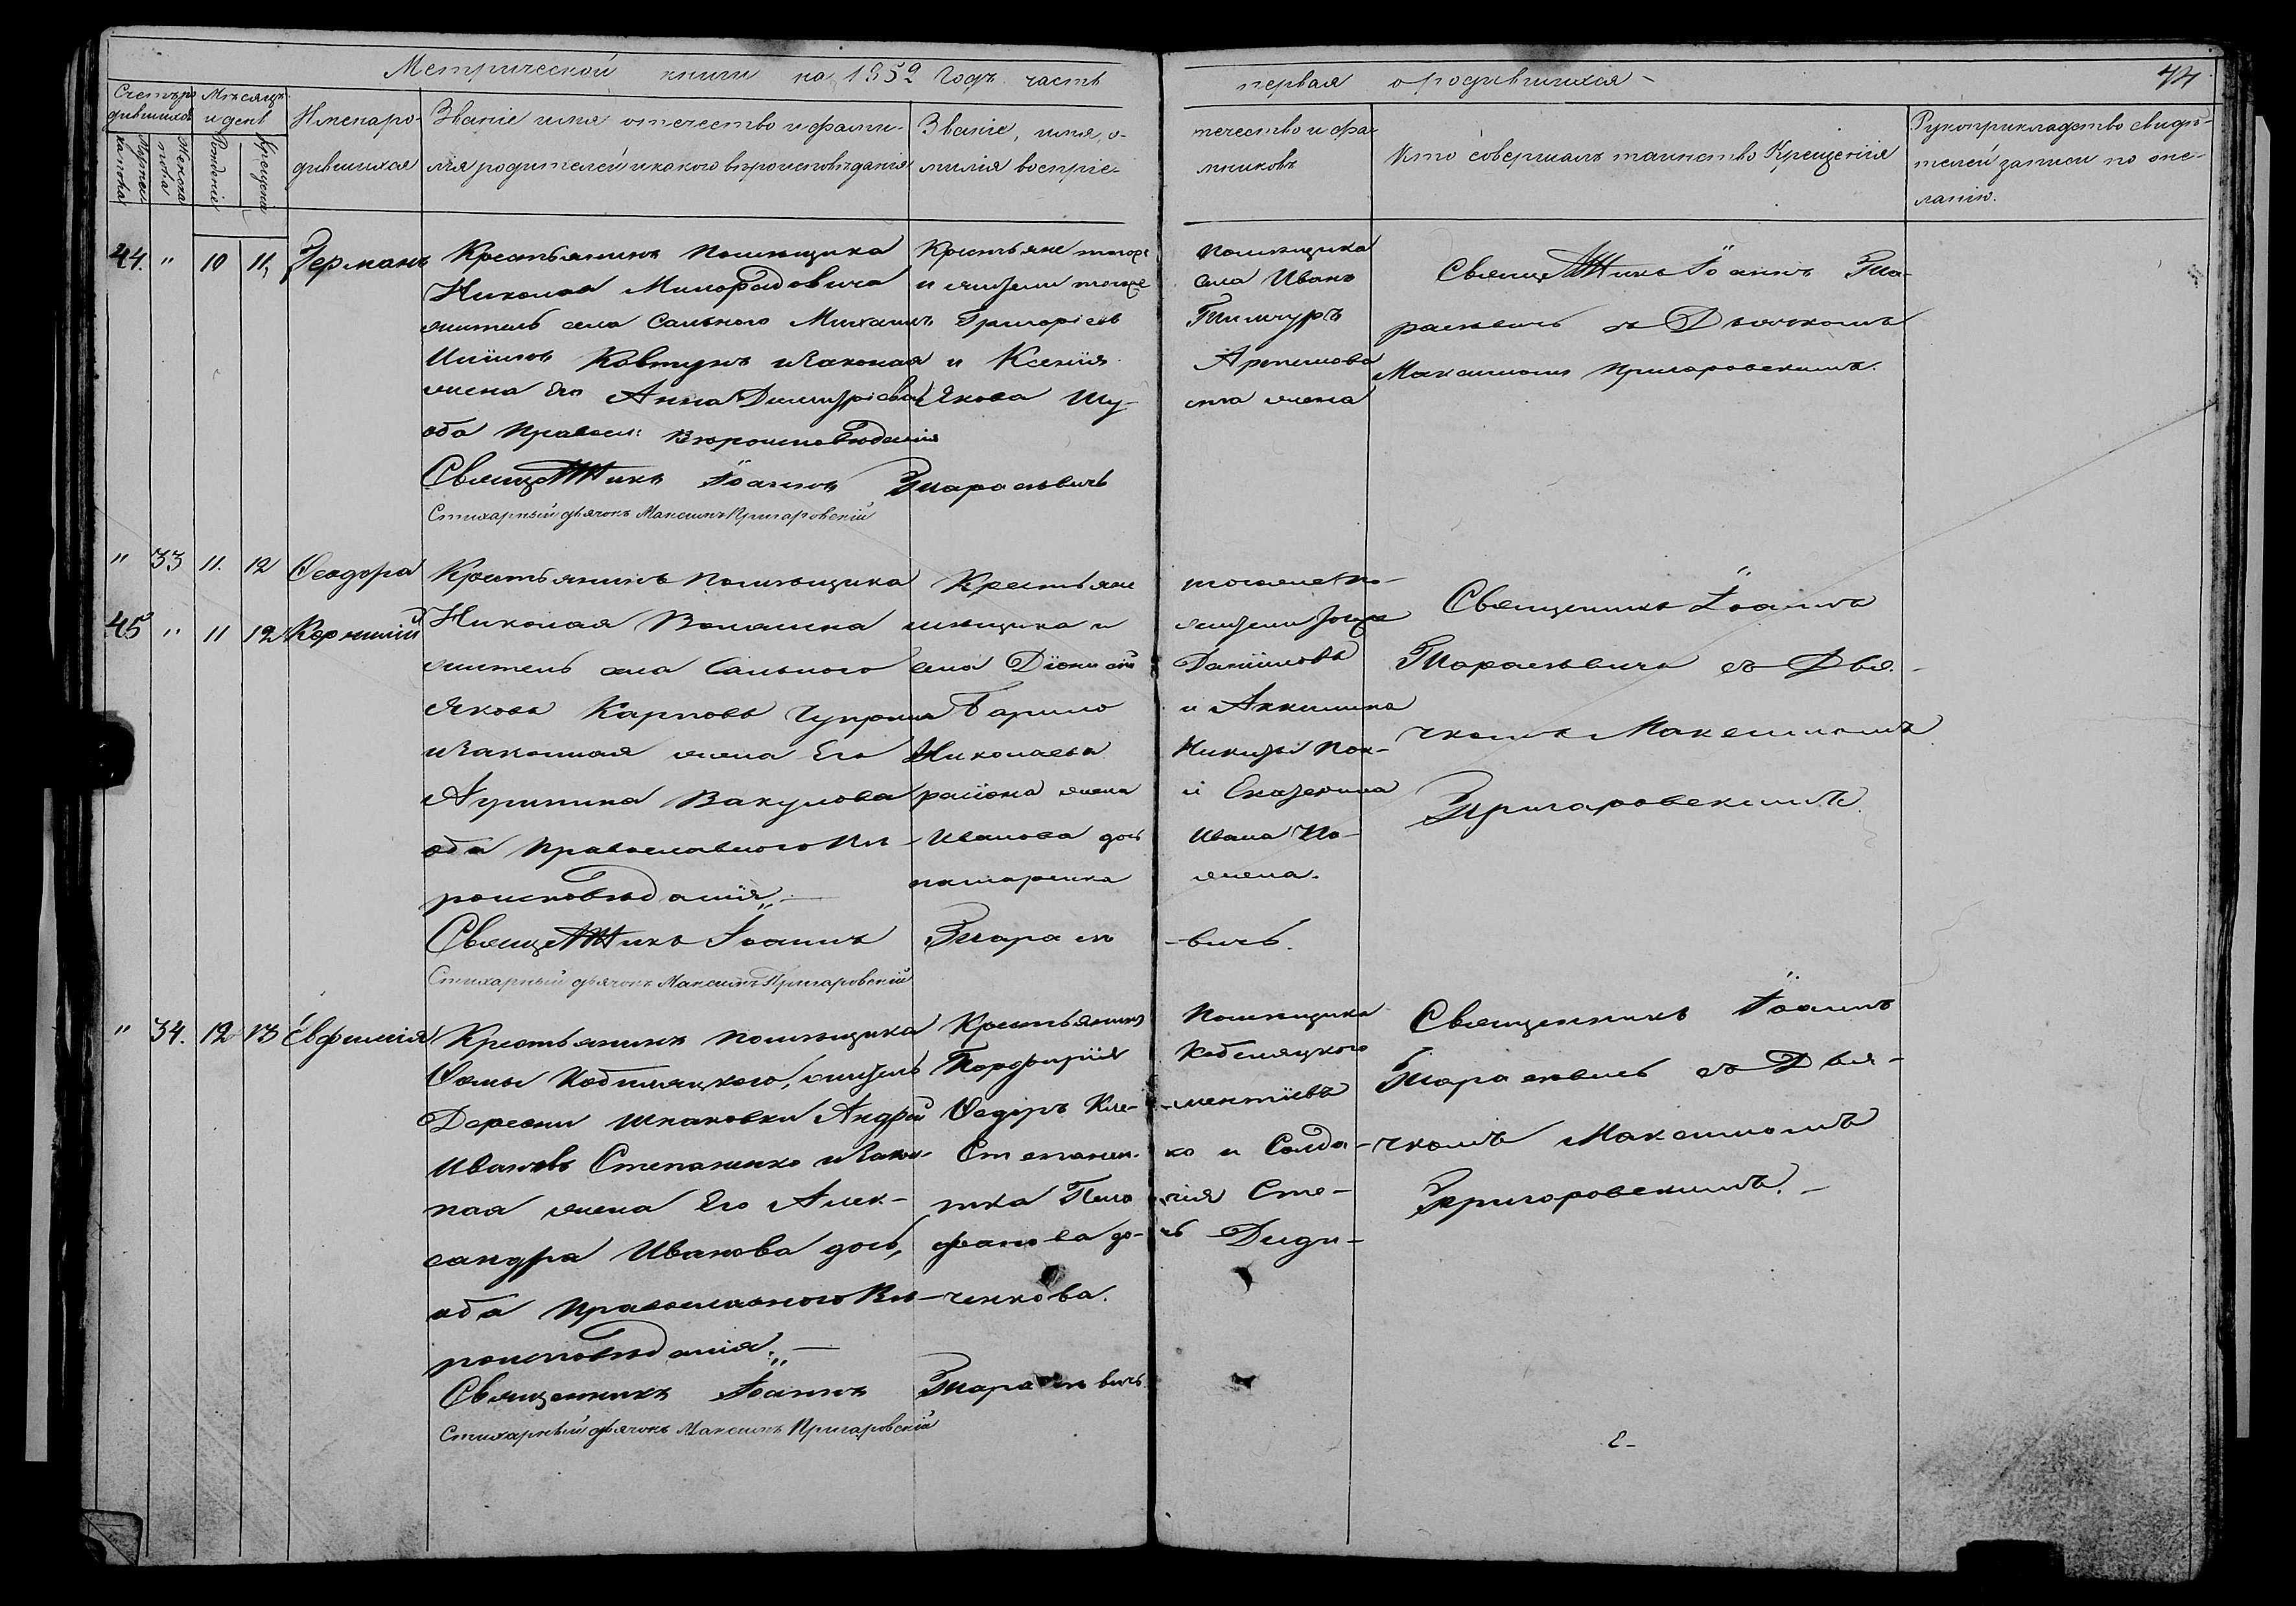 Метрической книги на 1852 годъ часть
первая о родившихся
44
Счетъ ро
дившихся
Мѣсяцъ
и день
Имена ро-
дившихся
Званіе имя отечество и фами-
лія родителей и какого вѣроисповѣданія
Званіе, имя, о-
милія воспріе-
течество и фа
мниковъ
Кто совершалъ таинство Крещенія
Рукоприкладство свидѣ-
телей записи по же-
ланію.
Мужеска пола
Женска пола
Рожденія
Крещенія
44. " 10 11, Германъ
Крестьянинъ помѣщика
Николая Милорадовича
житель села Сальнаго Михаилъ
Ковтунъ и законная
жена его Анна Димитріева
оба правосл: вѣроисповѣданія
Священникъ Іоаннъ Тарасевичъ
Стихарный дьячокъ Максимъ Пригаровскій
Крестьяне тогоже
и жители тогоже
Григоріевъ
и Ксенія
Якова Шу-
помѣщика
села Иванъ
Артемова
жена
Священникъ Іоаннъ Та-
расевичъ съ Дьячкомъ
Максимомъ Пригаровскимъ.
" 33 11. 12 Ѳеодора
45 " 11 12 Корнилій
Крестьянинъ помѣщика
Николая
житель села Сальнаго
Яковъ Карповъ Чуприна
и законная жена Его
Агрипина Вакулова
оба православнаго вѣ-
роисповѣданія „—
Священникъ Іоаннъ Тарасе
-вичъ.
Стихарный дьячокъ Максимъ Пригаровскій
Крестьяне
мѣщика и
села Діонисій
Николаева
жена
Иванова дочь
тогоже по-
жители тогоже
Даніиловъ
и Акилина
Никиты
и Екатерина
Ивана По-
жена.
Священникъ Іоаннъ
Тарасевичъ съ Дья-
чкомъ Максимомъ
Пригаровскимъ.
" 34. 12 13 Евфимія
Крестьянинъ помѣщика
Ѳомы Кобеляцкого, житель
Деревни Шпаковки Андрей
Ивановъ Степаненко и закон-
ная жена Его Алек-
сандра Иванова дочь,
оба православнаго вѣ-
роисповѣданія.„—
Священникъ Іоаннъ Тарасевичъ
Стихарный дьячокъ Максимъ Пригаровскій
Крестьянинъ
Порфирія
Ѳедоръ Кле-
Степанен-
тка
фанова до-
ченкова.
помѣщика
Кобеляцкого
-ментіевъ
ко и Солда-
Сте-
чь Диди-
Священникъ Іоаннъ
Тарасевичъ съ Дья-
чкомъ Максимомъ
Пригаровскимъ. —